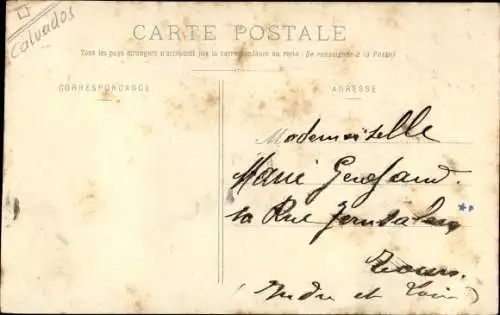 Calvados
CARTE POSTALE
Tous les pays étrangers n'acceptent pas la correspondance au recto (Se renseigner à la Poste)
CORRESPONDANCE
ADRESSE
Mademoiselle
Marie
Rue Jerusalem
Tours
(Indre et Loire)